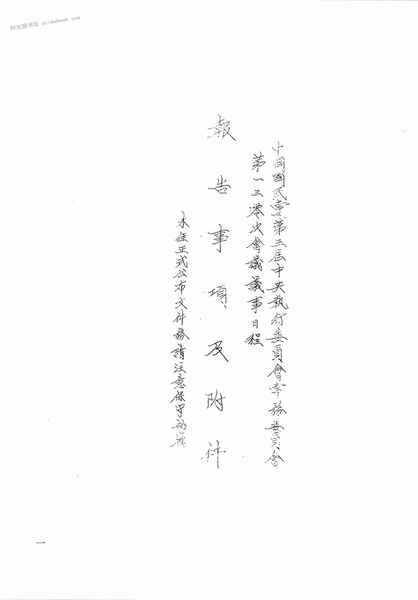 中國國民黨第三屆中央執行委員會常務委員會
第一三零次會議議事日程
報告事項及附件
未經正式公布文件務請注意保守秘密
一